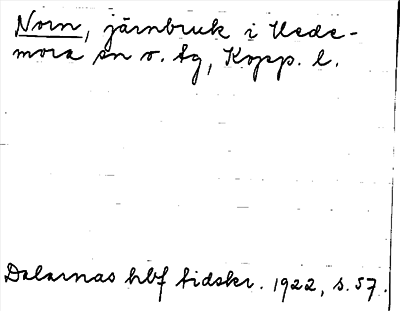 Norn, järnbruk i Hede-
mora sn o. tg, Kopp. l.
Dalarnas hbf tidskr. 1922, s. 57.